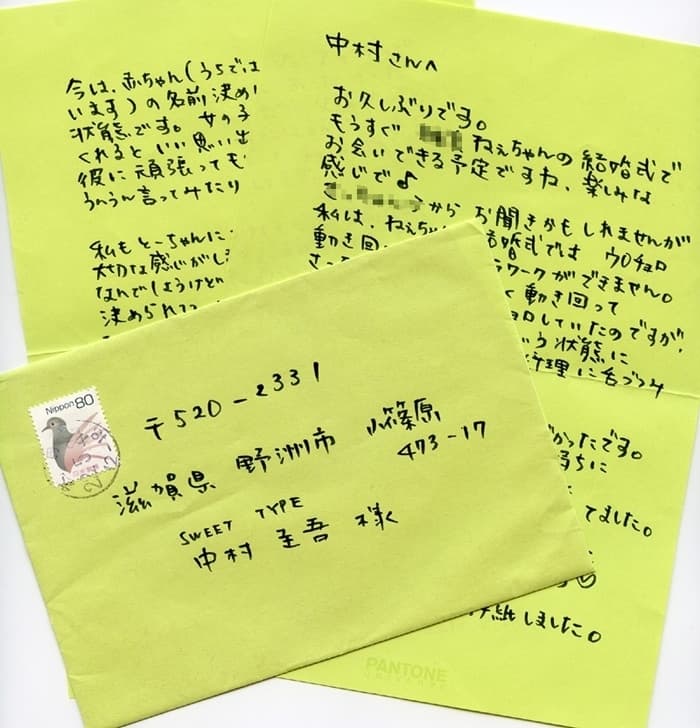 中村さんへ
お久しぶりです。
もうすぐ ねぇちゃんの結婚式で
お会いできる予定ですね、楽しみな
感じで♪
から お聞きかもしれませんが
私は、ねぇちゃ 結婚式では ウロチョロ
動き回 ラワークができません。
さっ く動き回って
ョロしていたのですが、
う状態に
料理に舌づつみ
かったです。
うちに
てました。
紙しました。
PANTONE
UNIVERSE
今は、赤ちゃん(うちでは
います)の名前決め
状態です。女の子
くれると いい思い出
彼に頑張っても
うんうん言ってみたり
私もとーちゃんに
大切な感じがし
なんでしょうけど
決められ
Nippon 80
〒520-2331
滋賀県 野洲市 小篠原
473-17
SWEET TYPE
中村 至吾 様